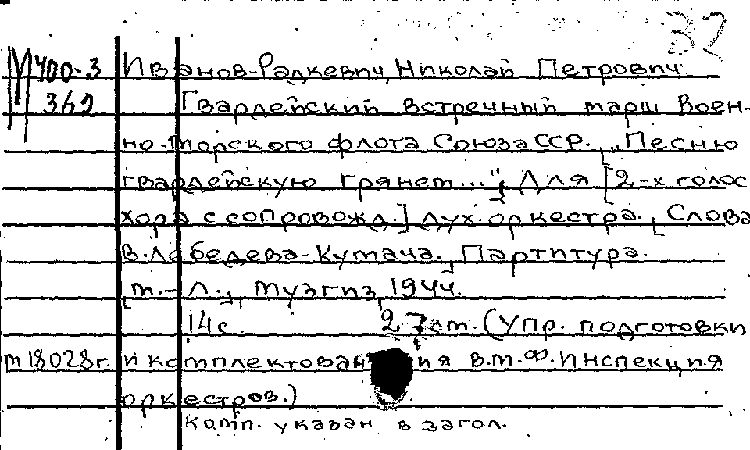 32
М 400.3 Иванов-Радкевич, Николай Петрович
362 Гвардейский встречный марш Воен-
но-Морского флота Союза ССР. "Песню
гвардейскую грянет..." Для [2-х голос
хора с сопровожд.] дух. оркестра. [Слова
В. Лебедева-Кумача. Партитура.
[М.-Л., Музгиз, 1944.
14с. 27 см. (Упр. подготовки
м18028г. и комплектования В.М.Ф. Инспекция
оркестров.)
Комп. указан в загол.